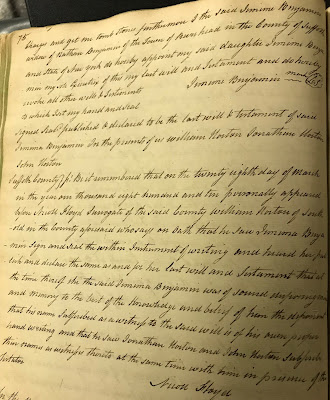 76
Eunger and get one tomb Stone furthermore I the said Jemima Benjamin
widow of Nathan Benjamin of the Town of River head in the County of Suffolk
and State of New York do hereby appoint my said daughter Jemima Benja
min my sole Executrix of this my last will and Testament and do hereby
revoke all other wills & testaments
to which I set my hand and seal Jemima Benjamin mark
Signed Sealed published & declared to be the last will & testament of said
Jemima Benjamin In the presents of us William Horton Jonathan Horton
John Horton
Suffolk County Be it remembered that on the twenty eighth day of March
in the year one thousand eight hundred and ten personally appeared
before Nicoll Floyd Surrogate of the said County William Horton of South
old in the County aforesaid who say on oath that he saw Jemima Benja
min Sign and seal the within Instrument of writing and heard her pub
lish and declare the same as and for her last will and Testament that at
the time thereof she the said Jemima Benjamin was of sound disposing mind
and memory to the best of the knowledge and belief of him the deponent
that his name Subscribed as a witness to the said will is of his own proper
hand writing and that he saw Jonathan Horton and John Horton Subscribe
their names as witnesses thereto at the same time with him in presence of the
Testator
Nicoll Floyd